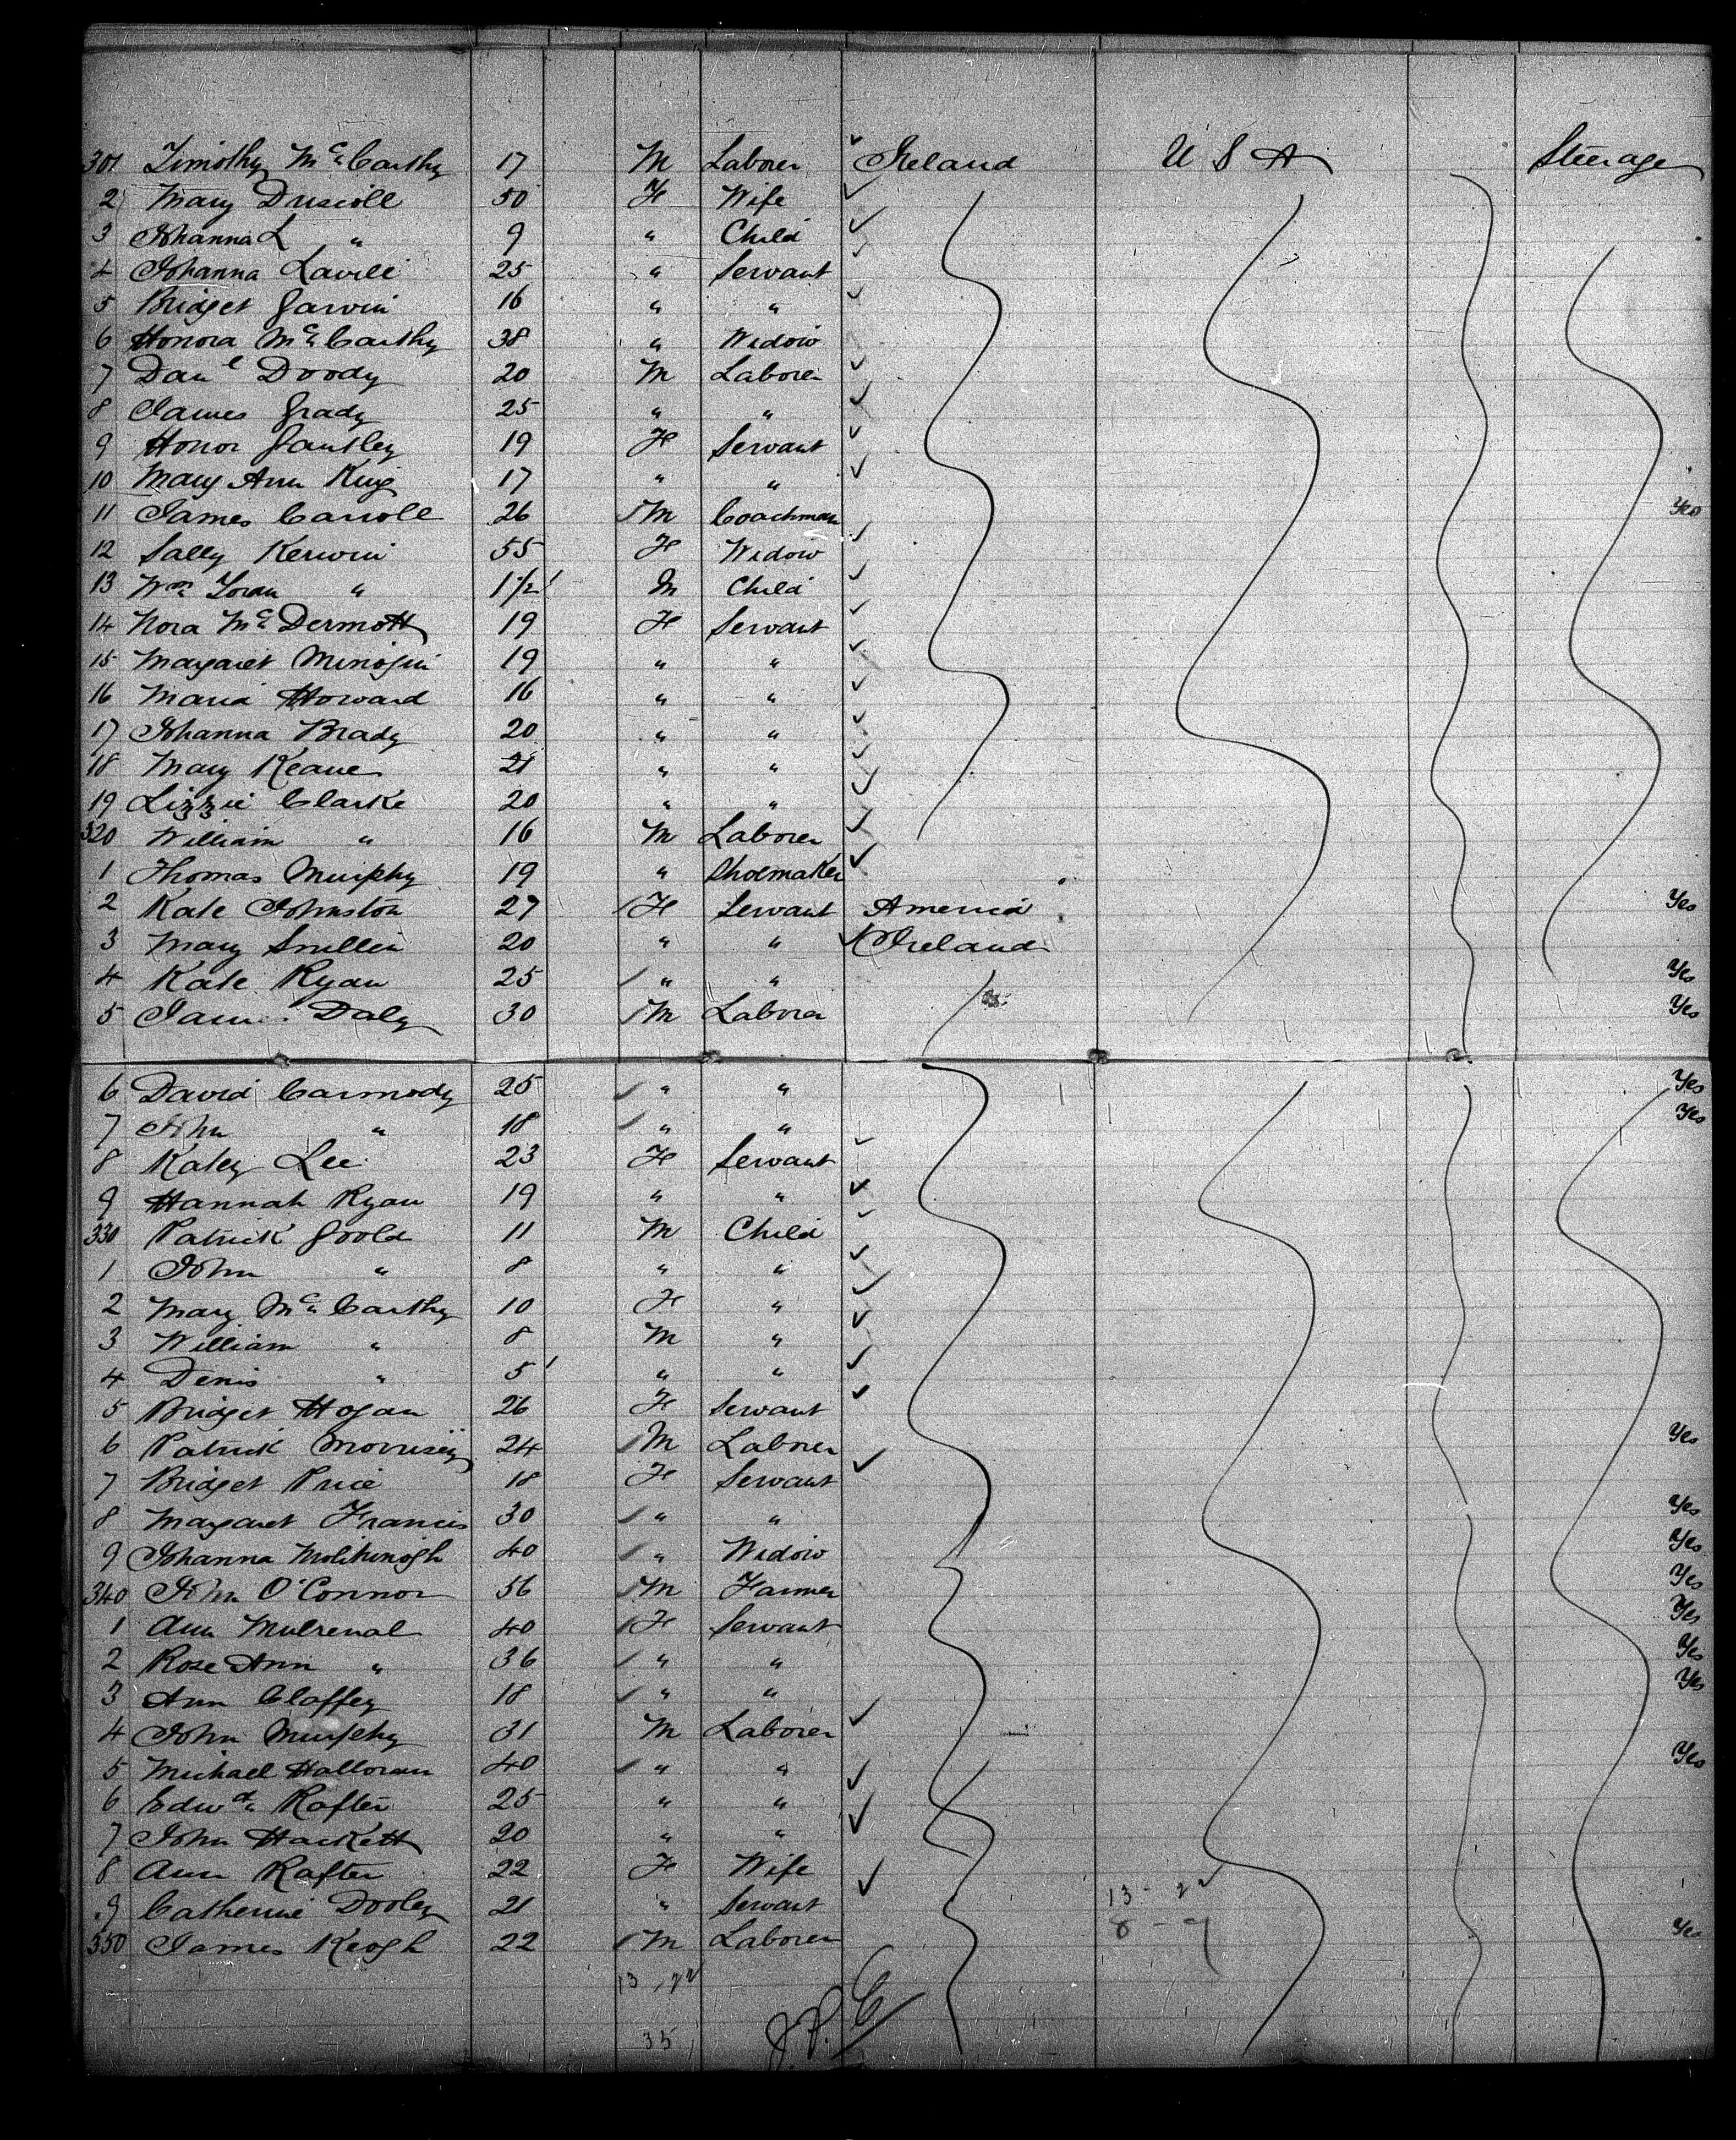 301 Timothy McCarthy 17 M Laborer Ireland U S A Steerage
2 Mary Driscoll 50 F Wife
3 Johanna L " 9 " Child
4 Johanna 25 " Servant
5 Bridget Garvin 16 " "
6 Honora McCarthy 38 " Widow
7 Danl Doody 20 M Laborer
8 James Grady 25 " "
9 Honor Gantley 19 F Servant
10 Mary Ann King 17 " "
11 James Carroll 26 M Coachman Yes
12 Sally Kerwin 55 F Widow
13 Wm " 1 1/2 M Child
14 Nora McDermott 19 F Servant
15 Margaret 19 " "
16 Maria Howard 16 " "
17 Johanna Brady 20 " "
18 Mary Keane 21 " "
19 Lizzie Clarke 20 " "
320 William " 16 M Laborer
1 Thomas Murphy 19 " Shoemaker
2 Kate Johnston 27 F Servant America Yes
3 Mary 20 " " Ireland
4 Kate Ryan 25 " " Yes
5 James Daly 30 M Laborer Yes
6 David Carmody 25 " " Yes
7 John " 18 " " Yes
8 Katey Lee 23 F Servant
9 Hannah Ryan 19 " "
330 Patrick Goold 11 M Child
1 John " 8 " "
2 Mary McCarthy 10 F "
3 William " 8 M "
4 Denis " 5 " "
5 Bridget Hogan 26 F Servant
6 Patrick Morrisey 24 M Laborer Yes
7 Bridget Price 18 F Servant
8 Margaret Francis 30 " " Yes
9 Johanna 40 " Widow Yes
340 John O'Connor 56 M Farmer Yes
1 Ann Mulrenal 40 F Servant Yes
2 Rose Ann " 36 " " Yes
3 Ann Claffey 18 " " Yes
4 John Murphy 31 M Laborer
5 Michael Halloran 40 " " Yes
6 Edwd Rafter 25 " "
7 John Hackett 20 " "
8 Ann Rafter 22 F Wife
9 Catherine Dooley 21 " Servant 13 - 22
8 - 7
350 James Keogh 22 M Laborer Yes
13 22
35